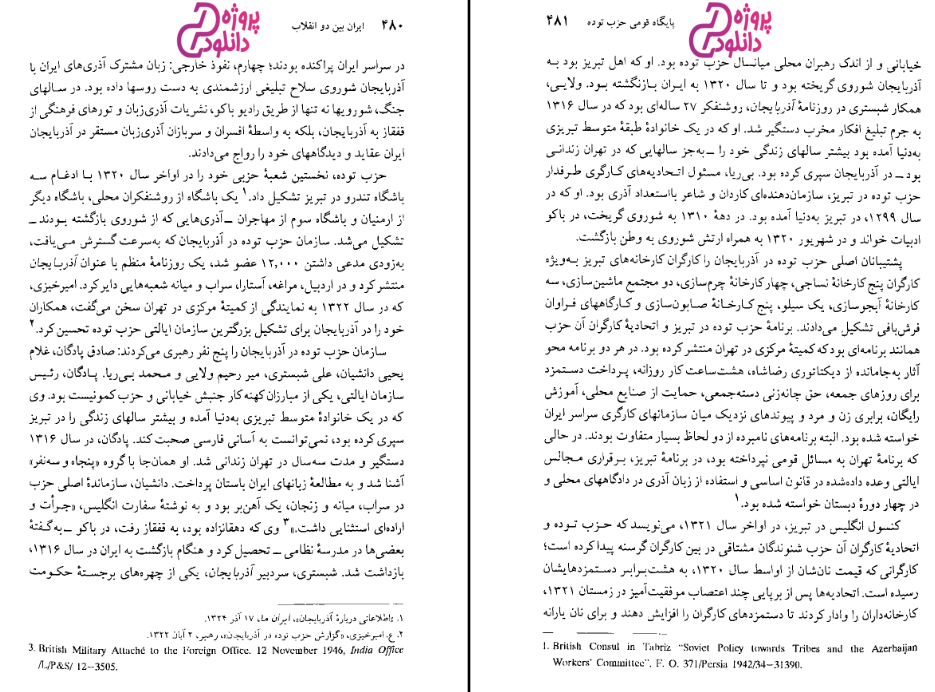 ۴۸۰ ایران بین دو انقلاب
پروژه
دانلود
در سراسر ایران پراکنده بودند؛ چهارم، نفوذ خارجی: زبان مشترک آذری‌های ایران با
آذربایجان شوروی سلاح تبلیغی ارزشمندی به دست روسها داده بود. در سالهای
جنگ، شورویها نه تنها از طریق رادیو باکو، نشریات آذری‌زبان و تورهای فرهنگی از
قفقاز به آذربایجان، بلکه به واسطهٔ افسران و سربازان آذری‌زبان مستقر در آذربایجان
ایران عقاید و دیدگاههای خود را رواج می‌دادند.
حزب توده، نخستین شعبهٔ حزبی خود را در اواخر سال ۱۳۲۰ بـا ادغـام سـه
باشگاه تندرو در تبریز تشکیل داد.۱ یک باشگاه از روشنفکران محلی، باشگاه دیگر
از ارمنیان و باشگاه سوم از مهاجران ــ آذری‌هایی که از شوروی بازگشته بـودند ــ
تشکیل می‌شد. سازمان حزب توده در آذربایجان که به‌سرعت گسترش مـی‌یافت،
به‌زودی مدعی داشتن ۱۲,۰۰۰ عضو شد، یک روزنامهٔ منظم با عنوان آذربـایجان
منتشر کرد و در اردبیل، مراغه، آستارا، سراب و میانه شعبه‌هایی دایر کرد. امیرخیزی،
که در سال ۱۳۲۲ به نمایندگی از کمیتهٔ مرکزی در تهران سخن می‌گفت، همکاران
خود را در آذربایجان برای تشکیل بزرگترین سازمان ایالتی حزب توده تحسین کرد.۲
سازمان حزب توده در آذربایجان را پنج نفر رهبری می‌کردند: صادق پادگان، غلام
یحیی دانشیان، علی شبستری، میر رحیم ولایی و محمد بی‌ریا. پـادگان، رئـیس
سازمان ایالتی، یکی از مبارزان کهنه‌کار جنبش خیابانی و حزب کمونیست بود. وی
که در یک خانوادهٔ متوسط تبریزی به‌دنیا آمده و بیشتر سالهای زندگی را در تبریز
سپری کرده بود، نمی‌توانست به آسانی فارسی صحبت کند. پادگان، در سال ۱۳۱۶
دستگیر و مدت سه‌سال در تهران زندانی شد. او همان‌جا با گروه «پنجاه و سه‌نفر»
آشنا شد و به مطالعهٔ زبانهای ایران باستان پرداخت. دانشیان، سازماندهٔ اصلی حزب
در سراب، میانه و زنجان، یک آهن‌بر بود و به نوشتهٔ سفارت انگلیس، «جرأت و
اراده‌ای استثنایی داشت.»۳ وی که دهقانزاده بود، به قفقاز رفت، در باکو ــ به‌گفتهٔ
بعضی‌ها در مدرسهٔ نظامی ــ تحصیل کرد و هنگام بازگشت به ایران در سال ۱۳۱۶،
بازداشت شد. شبستری، سردبیر آذربایجان، یکی از چهره‌های برجستهٔ حکومت
۱. «اطلاعاتی دربارهٔ آذربایجان»، ایران ما، ۱۷ آذر ۱۳۲۴.
۲. ع. امیرخیزی، «گزارش حزب توده در آذربایجان»، رهبر، ۲ آبان ۱۳۲۲.
3. British Military Attaché to the Foreign Office. 12 November 1946, India Office
/L/P&S/ 12-3505.
پایگاه قومی حزب توده ۴۸۱
پروژه
دانلود
خیابانی و از اندک رهبران محلی میانسال حزب توده بود. او که اهل تبریز بود بـه
آذربایجان شوروی گریخته بود و تا سال ۱۳۲۰ به ایران بـازنگشته بـود. ولایـی،
همکار شبستری در روزنامهٔ آذربایجان، روشنفکر ۲۷ ساله‌ای بود که در سال ۱۳۱۶
به جرم تبلیغ افکار مخرب دستگیر شد. او که در یک خانوادهٔ طبقهٔ متوسط تبریزی
به‌دنیا آمده بود بیشتر سالهای زندگی خود را ــ به‌جز سالهایی که در تهران زندانی
بود ــ در آذربایجان سپری کرده بود. بی‌ریا، مسئول اتحادیه‌های کارگری طرفدار
حزب توده در تبریز، سازمان‌دهنده‌ای کاردان و شاعر بااستعداد آذری بود. او که در
سال ۱۲۹۹، در تبریز به‌دنیا آمده بود. در دههٔ ۱۳۱۰ به شوروی گریخت، در باکو
ادبیات خواند و در شهریور ۱۳۲۰ به همراه ارتش شوروی به وطن بازگشت.
پشتیبانان اصلی حزب توده در آذربایجان را کارگران کارخانه‌های تبریز به‌ویژه
کارگران پنج کارخانهٔ نساجی، چهار کارخانهٔ چرم‌سازی، دو مجتمع ماشین‌سازی، سه
کارخانهٔ آبجوسازی، یک سیلو، پنج کـارخـانهٔ صـابون‌سازی و کـارگاههای فـراوان
فرش‌بافی تشکیل می‌دادند. برنامهٔ حزب توده در تبریز و اتحادیهٔ کارگران آن حزب
همانند برنامه‌ای بود که کمیتهٔ مرکزی در تهران منتشر کرده بود. در هر دو برنامه محو
آثار به‌جامانده از دیکتاتوری رضاشاه، هشت‌ساعت کار روزانه، پرداخت دستـمزد
برای روزهای جمعه، حق چانه‌زنی دسته‌جمعی، حمایت از صنایع محلی، آموزش
رایگان، برابری زن و مرد و پیوندهای نزدیک میان سازمانهای کارگری سراسر ایران
خواسته شده بود. البته برنامه‌های نامبرده از دو لحاظ بسیار متفاوت بودند. در حالی
که برنامهٔ تهران به مسائل قومی نپرداخته بود، در برنامهٔ تبریز، بـرقراری مجـالس
ایالتی وعده داده‌شده در قانون اساسی و استفاده از زبان آذری در دادگاههای محلی و
در چهار دورهٔ دبستان خواسته شده بود.۱
کنسول انگلیس در تبریز، در اواخر سال ۱۳۲۱، می‌نویسد که حـزب تـوده و
اتحادیهٔ کارگران آن حزب شنوندگان مشتاقی در بین کارگران گرسنه پیدا کرده است؛
کارگرانی که قیمت نان‌شان از اواسط سال ۱۳۲۰، به هشت‌بـرابـر دستمزدهایشان
رسیده است. اتحادیه‌ها پس از برپایی چند اعتصاب موفقیت‌آمیز در زمستان ۱۳۲۱،
کارخانه‌داران را وادار کردند تا دستمزدهای کارگران را افزایش دهند و برای نان یارانه
1. British Consul in Tabriz "Soviet Policy towards Tribes and the Azerbaijan
Workers' Committee", F. O. 371/Persia 1942/34-31390.